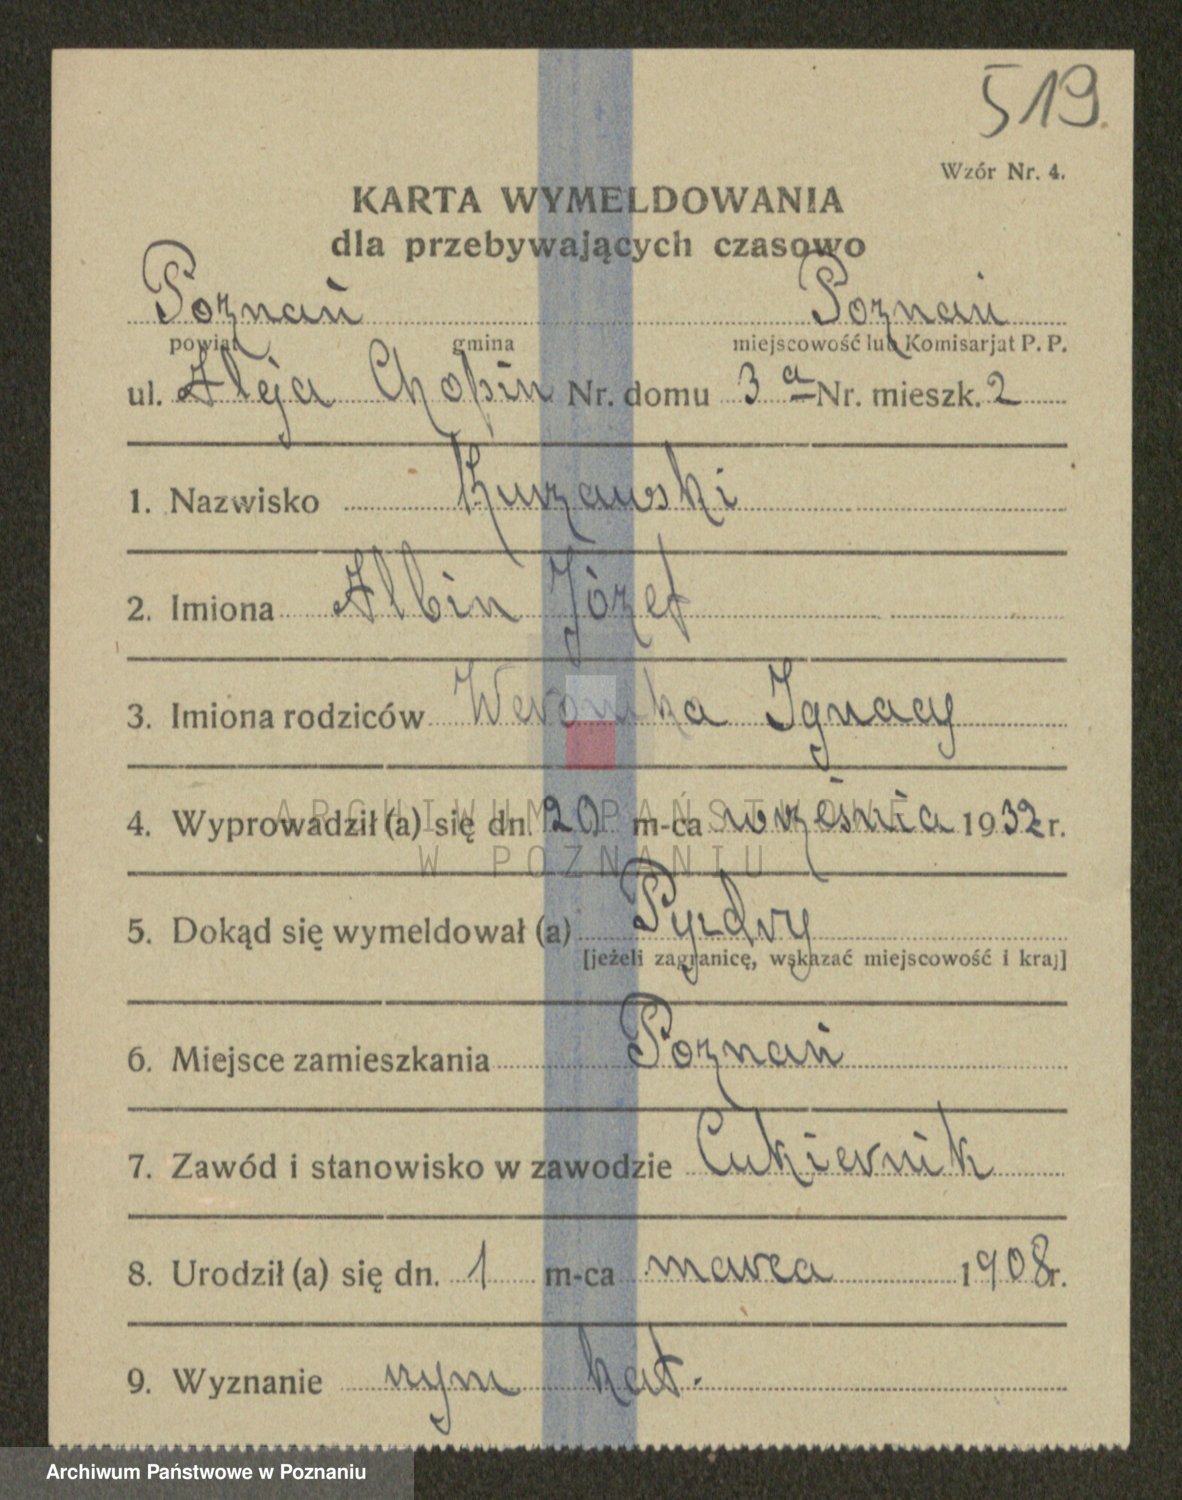 519.
Wzór Nr. 4.
KARTA WYMELDOWANIA
dla przebywających czasowo
Poznań Poznań
powiat gmina miejscowość lub Komisarjat P. P.
ul. Aleja Chopin Nr. domu 3 a Nr. mieszk. 2
1. Nazwisko Kurzawski
2. Imiona Albin Józef
3. Imiona rodziców Weronika Ignacy
4. Wyprowadził (a) się dn. 20 m-ca września 1932 r.
ARCHIWUM PAŃSTWOWE
W POZNANIU
5. Dokąd się wymeldował (a) Pyzdry
[jeżeli zagranicę, wskazać miejscowość i kraj]
6. Miejsce zamieszkania Poznań
7. Zawód i stanowisko w zawodzie Cukiernik
8. Urodził (a) się dn. 1 m-ca marca 1908 r.
9. Wyznanie rzym kat.
Archiwum Państwowe w Poznaniu